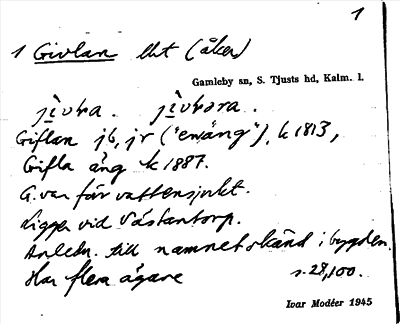 1
1 Givlan lht (åker)
Gamleby sn, S. Tjusts hd, Kalm. l.
Giflan jb, jr ("enäng"), k 1813,
Gifla äng k 1887.
G. var förr vattensjukt.
Ligger vid Västantorp.
Anledn. till namnet okänd i bygden.
Har flera ägare s. 28,100.
Ivar Modéer 1945